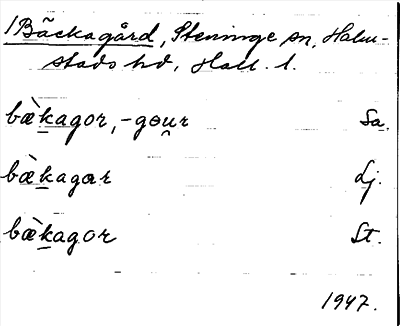 1 Bäckagård, Steninge sn, Halm-
stads hd, Hall. l.
bæ̀kagor, -gou̯r Sa.
bæ̀kagar Lj.
bæ̀kagor St.
1947.